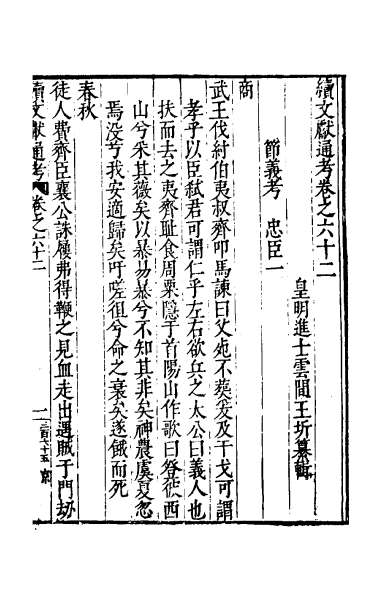 續文獻通考卷之六十二
皇明進士雲間王圻纂輯
節義考　忠臣一
商
武王伐紂伯夷叔齊叩馬諫曰父死不葬爰及干戈可謂
孝乎以臣弒君可謂仁乎左右欲兵之太公曰義人也
扶而去之夷齊耻食周粟隱于首陽山作歌曰登彼西
山兮采其薇矣以暴易暴兮不知其非矣神農虞夏忽
焉没兮我安適歸矣吁嗟徂兮命之衰矣遂餓而死
春秋
徒人費齊臣襄公誅屨弗得鞭之見血走出遇賊于門劫
續文獻通考 卷之六十二 一